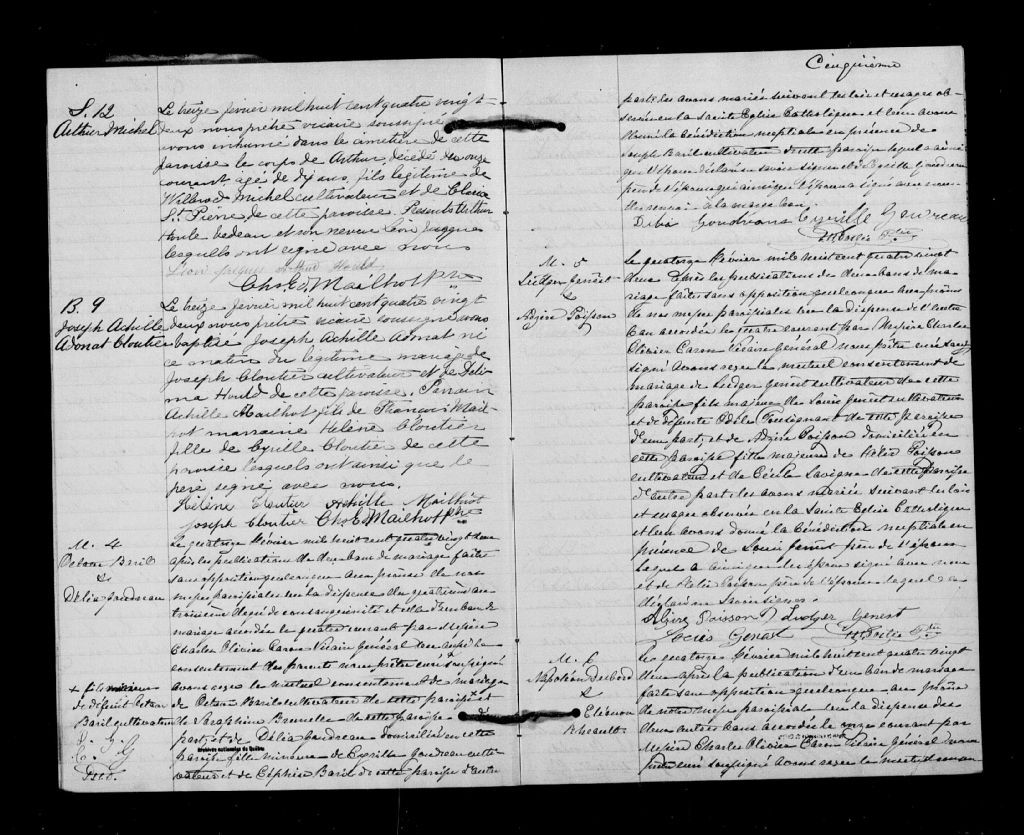 S. 12
Arthur Michel
Le treize février mil huit cent quatre vingt-
deux nous prêtre vicaire soussigné
avons inhumé dans le cimetière de cette
paroisse le corps de Arthur, décédé le onze
courant, agé de dix ans, fils légitime de
Willbrod Michel cultivateur et de
St Pierre de cette paroisse. Présents Arthur
Hould bedeau et son neveu Léon Jacques
lesquels ont signé avec nous
Léon Jacques Arthur Hould
Chs Ed Mailhot Ptre
B. 9
Joseph Achille
Adonat Cloutier
Le treize février mil huit cent quatre vingt
deux nous prêtre vicaire soussigné avons
baptisé Joseph Achille Adonat né
ce matin du légitime mariage de
Joseph Cloutier cultivateur et de Déli-
ma Hould de cette paroisse. Parrain
Achille Mailhot fils de François Mail-
hot marraine Hélène Cloutier
fille de Cyrille Cloutier de cette
paroisse lesquels ont ainsi que le
père signé avec nous.
Hélène Cloutier Achille Mailhot
Joseph Cloutier Chs Ed Mailhot Ptre
M. 4
Octave Baril
&
Délia Gaudreau
Le quatorze Février mil huit cent quatre vingt deux
après la publication de deux bans de mariage faite
sans opposition quelconque aux prônes de nos
messes paroissiales vu la dispense du quatrième au
troisième degré de consanguinité et celle d'un ban de
mariage accordée le quatre courant par Messire
Charles Olivier Caron Vicaire Général vu aussi le
consentement des parents nous prêtre curé soussigné
avons reçu le mutuel consentement de mariage
de Octave Baril cultivateur de cette paroisse et
de Séraphine Brunelle de cette paroisse d'une
part, et de Délia Gaudreau domiciliée en cette
paroisse fille mineure de Cyrille Gaudreau culti-
vateur et de Zéphire Baril de cette paroisse d'autre
+ fils mineur
de défunt Octave
Baril cultivateur
Archives nationales du Québec
Cinquième
part les avons mariés suivant les lois et usages ob-
servés en la Sainte Eglise Catholique et leur avons
donné la bénédiction nuptiale en présence de
Joseph Baril cultivateur de cette paroisse lequel ainsi
que l'époux déclaré ne savoir signer et de Cyrille Gaudreau
père de l'épouse qui ainsi que l'épouse a signé avec nous
Délia Goudreau Cyrille Goudreau
Ptre
M. 5
Ludger Genest
&
Alzire Poisson
Le quatorze Février mil huit cent quatre vingt
deux après les publications de deux bans de ma-
riage faites sans opposition quelconque aux prônes
de nos messes paroissiales vu la dispense de l'autre
ban accordée le quatre courant par Messire Charles
Olivier Caron Vicaire Général nous prêtre curé sous-
signé avons reçu le mutuel consentement de
mariage de Ludger Genest cultivateur de cette
paroisse fils majeur de Louis Genest cultivateur
et de défunte Odile Tousignant de cette paroisse
d'une part, et de Alzire Poisson domiciliée en
cette paroisse fille majeure de Poisson
cultivateur et de Cécile Savigna de cette paroisse
d'autre part les avons mariés suivant les lois
et usages observés en la Sainte Eglise Catholique
et leur avons donné la bénédiction nuptiale en
présence de Louis Genest père de l'époux
lequel a ainsi que les époux signé avec nous
et de Poisson père de l'épouse lequel a
déclaré ne savoir signer.
Alzire Poisson Ludger Genest
Louis Genest Ptre
M. 6
Napoléon Desbord
&
Eléonore
Rheault
Le quatorze Février mil huit cent quatre vingt
deux après la publication d'un ban de mariage
faite sans opposition quelconque au prône
de notre messe paroissiale vu la dispense des
deux autres bans accordée le onze courant par
Messire Charles Olivier Caron Vicaire Général nous
prêtre curé soussigné avons reçu le mutuel consen